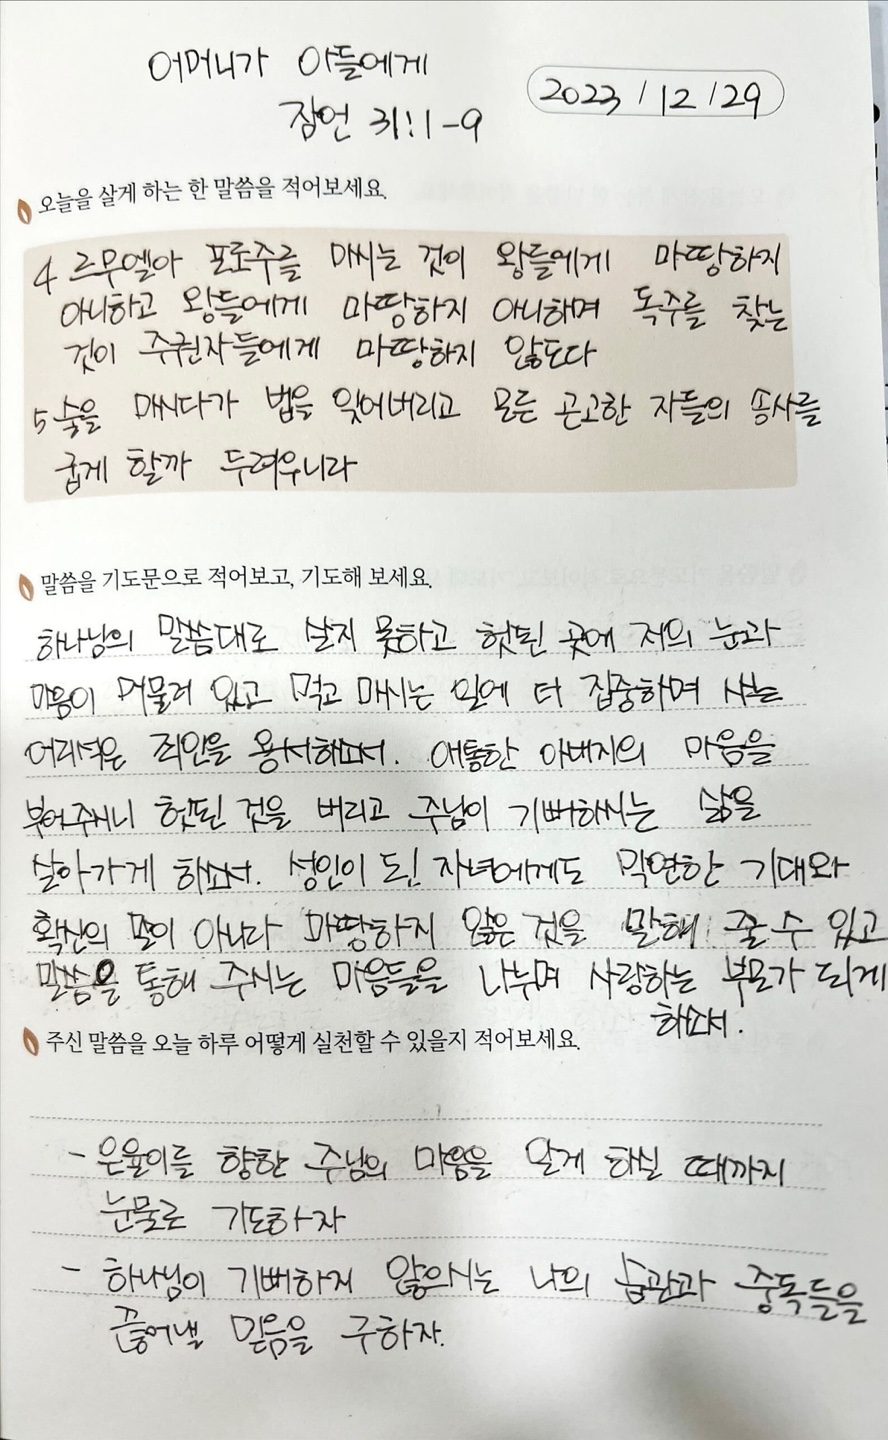 어머니가 아들에게
잠언 31:1-9
2023/12/29
오늘을 살게 하는 한 말씀을 적어보세요.
4 르무엘아 포도주를 마시는 것이 왕들에게 마땅하지
아니하고 왕들에게 마땅하지 아니하며 독주를 찾는
것이 주권자들에게 마땅하지 않도다
5 술을 마시다가 법을 잊어버리고 모든 곤고한 자들의 송사를
굽게 할까 두려우니라
말씀을 기도문으로 적어보고, 기도해 보세요.
하나님의 말씀대로 살지 못하고 헛된 곳에 저의 눈과
마음이 머물러 있고 먹고 마시는 일에 더 집중하며 사는
어리석은 죄인을 용서하소서. 애통한 아버지의 마음을
부어주시니 헛된 것을 버리고 주님이 기뻐하시는 삶을
살아가게 하소서. 성인이 된 자녀에게도 막연한 기대와
확신의 말이 아니라 마땅하지 않은 것을 말해 줄 수 있고
말씀을 통해 주시는 마음들을 나누며 사랑하는 부모가 되게
하소서.
주신 말씀을 오늘 하루 어떻게 실천할 수 있을지 적어보세요.
- 은율이를 향한 주님의 마음을 알게 하실 때까지
눈물로 기도하자
- 하나님이 기뻐하지 않으시는 나의 습관과 중독들을
끊어낼 믿음을 구하자.